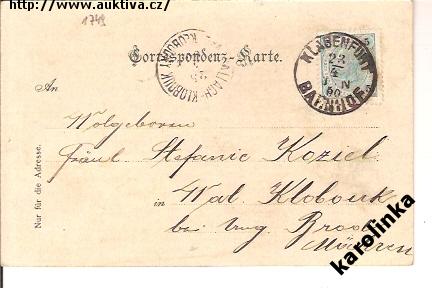 http://www.auktiva.cz/
1749
Correspondenz-Karte.
WALLACH-KLOBOUK
KLAGENFURT
BAHNHOF
An
Nur für die Adresse.
Wolgeboren
Fräul. Stefanie Koziel
in Wal. Klobouk
bei Ung. Brod
Mähren
karolinka